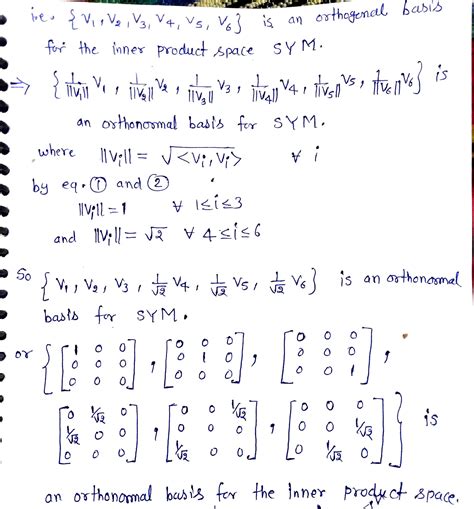 i.e. { V₁, V₂, V₃, V₄, V₅, V₆ } is an orthogonal basis
for the inner product space SYM.
⇒ { 1/||V₁|| V₁ , 1/||V₂|| V₂ , 1/||V₃|| V₃ , 1/||V₄|| V₄ , 1/||V₅|| V₅ , 1/||V₆|| V₆ } is
an orthonormal basis for SYM.
where ||Vᵢ|| = √<Vᵢ, Vᵢ> ∀ i
by eq. ① and ②
||Vᵢ|| = 1 ∀ 1≤i≤3
and ||Vᵢ|| = √2 ∀ 4≤i≤6
So { V₁, V₂, V₃, 1/√2 V₄, 1/√2 V₅, 1/√2 V₆ } is an orthonormal
basis for SYM.
or { [1 0 0; 0 0 0; 0 0 0] , [0 0 0; 0 1 0; 0 0 0] , [0 0 0; 0 0 0; 0 0 1] ,
[0 1/√2 0; 1/√2 0 0; 0 0 0] , [0 0 1/√2; 0 0 0; 1/√2 0 0] , [0 0 0; 0 0 1/√2; 0 1/√2 0] } is
an orthonormal basis for the inner product space.